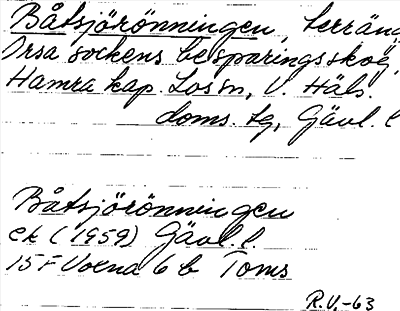 Båtsjörönningen, terräng
Orsa sockens besparingsskog,
Hamra kap. Los sn, V. Häls.
doms. tg, Gävl. l
Båtsjörönningen
ek (1959) Gävl. l.
15 F Voxna 6 b Toms
R.V.-63